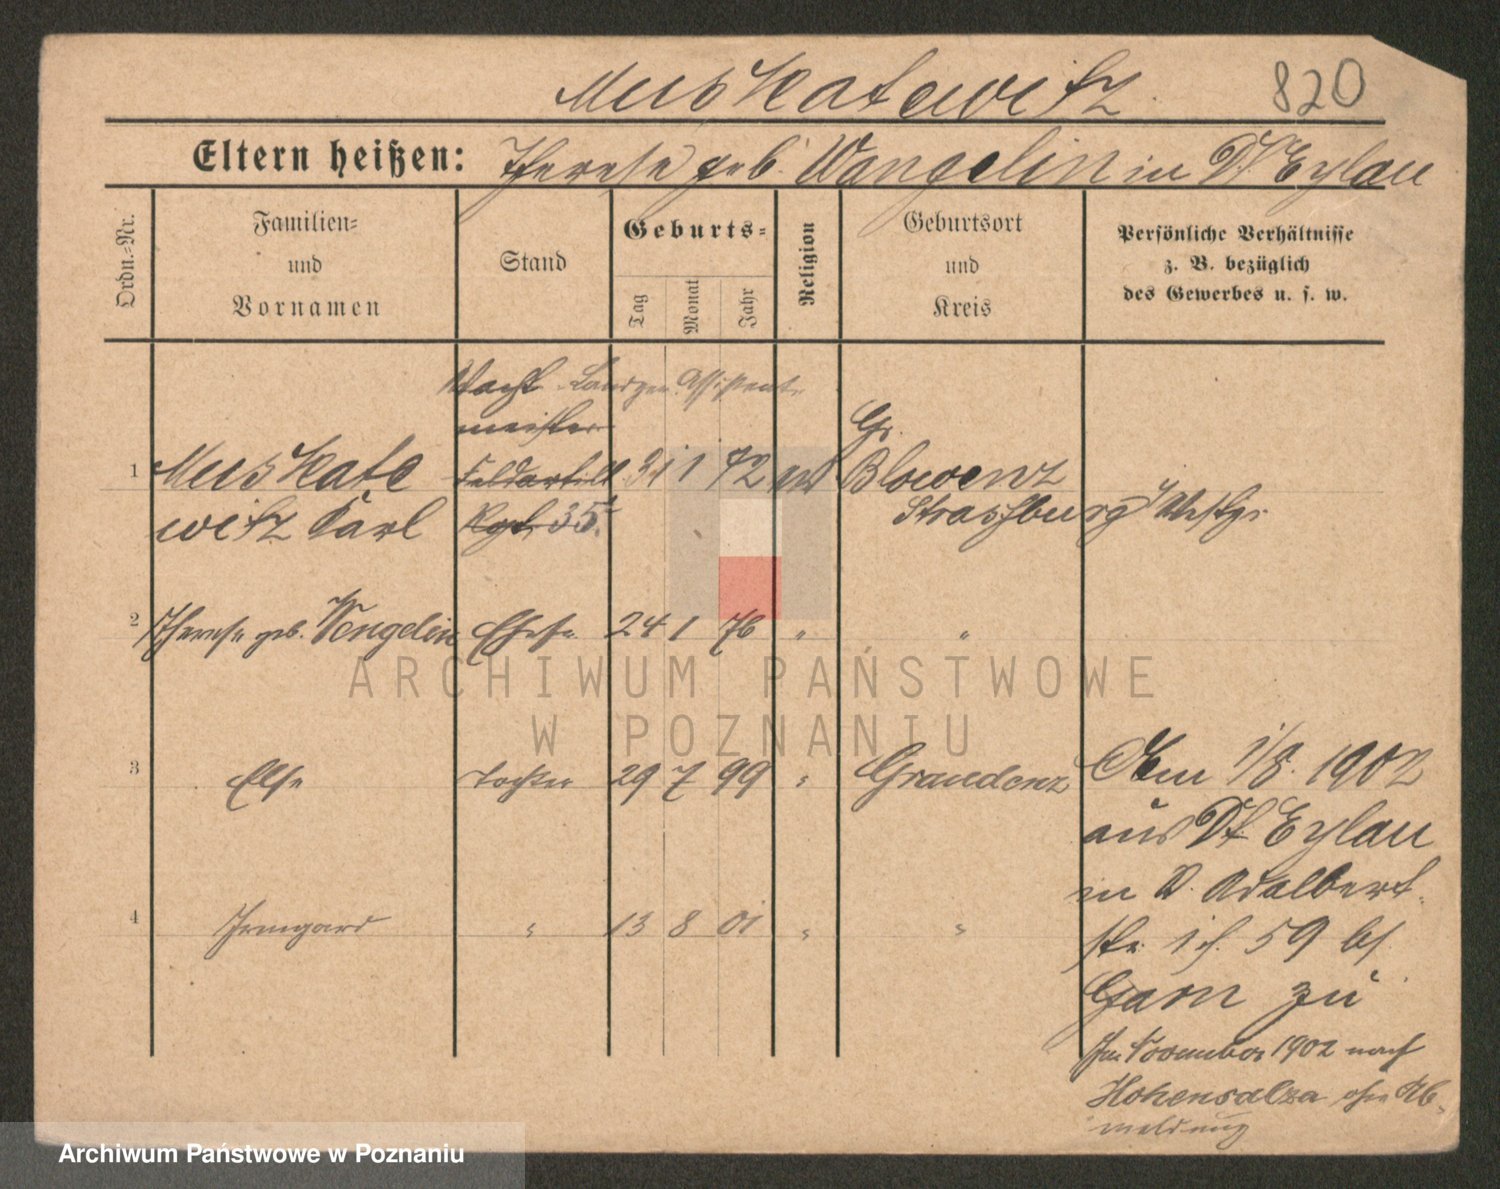 Muskatewitz.
820
Eltern heißen: Therese geb. Wangelin in Dt. Eylau
Ordn.-Nr.
Familien-
und
Vornamen
Stand
Geburts-
Tag
Monat
Jahr
Religion
Geburtsort
und
Kreis
Persönliche Verhältnisse
z. B. bezüglich
des Gewerbes u. s. w.
Wacht- Landger. Assistent
meister
Gr.
1 Muskate Feldartill 31 1 72 Blowenz
witz Karl Rgt. 35. Strassburg Westpr.
2 Therese geb. Wengelin Ehefr. 24 1 76 " "
3 Else Tochter 29 7 99 " Graudenz Am 1/8. 1902
aus Dt Eylau
in Adalbert
4 Irmgard " 13 8 01 " " str. 59
Garn zu
Im November 1902 nach
Hohensalza ohne Ab-
meldung
ARCHIWUM PAŃSTWOWE
W POZNANIU
Archiwum Państwowe w Poznaniu